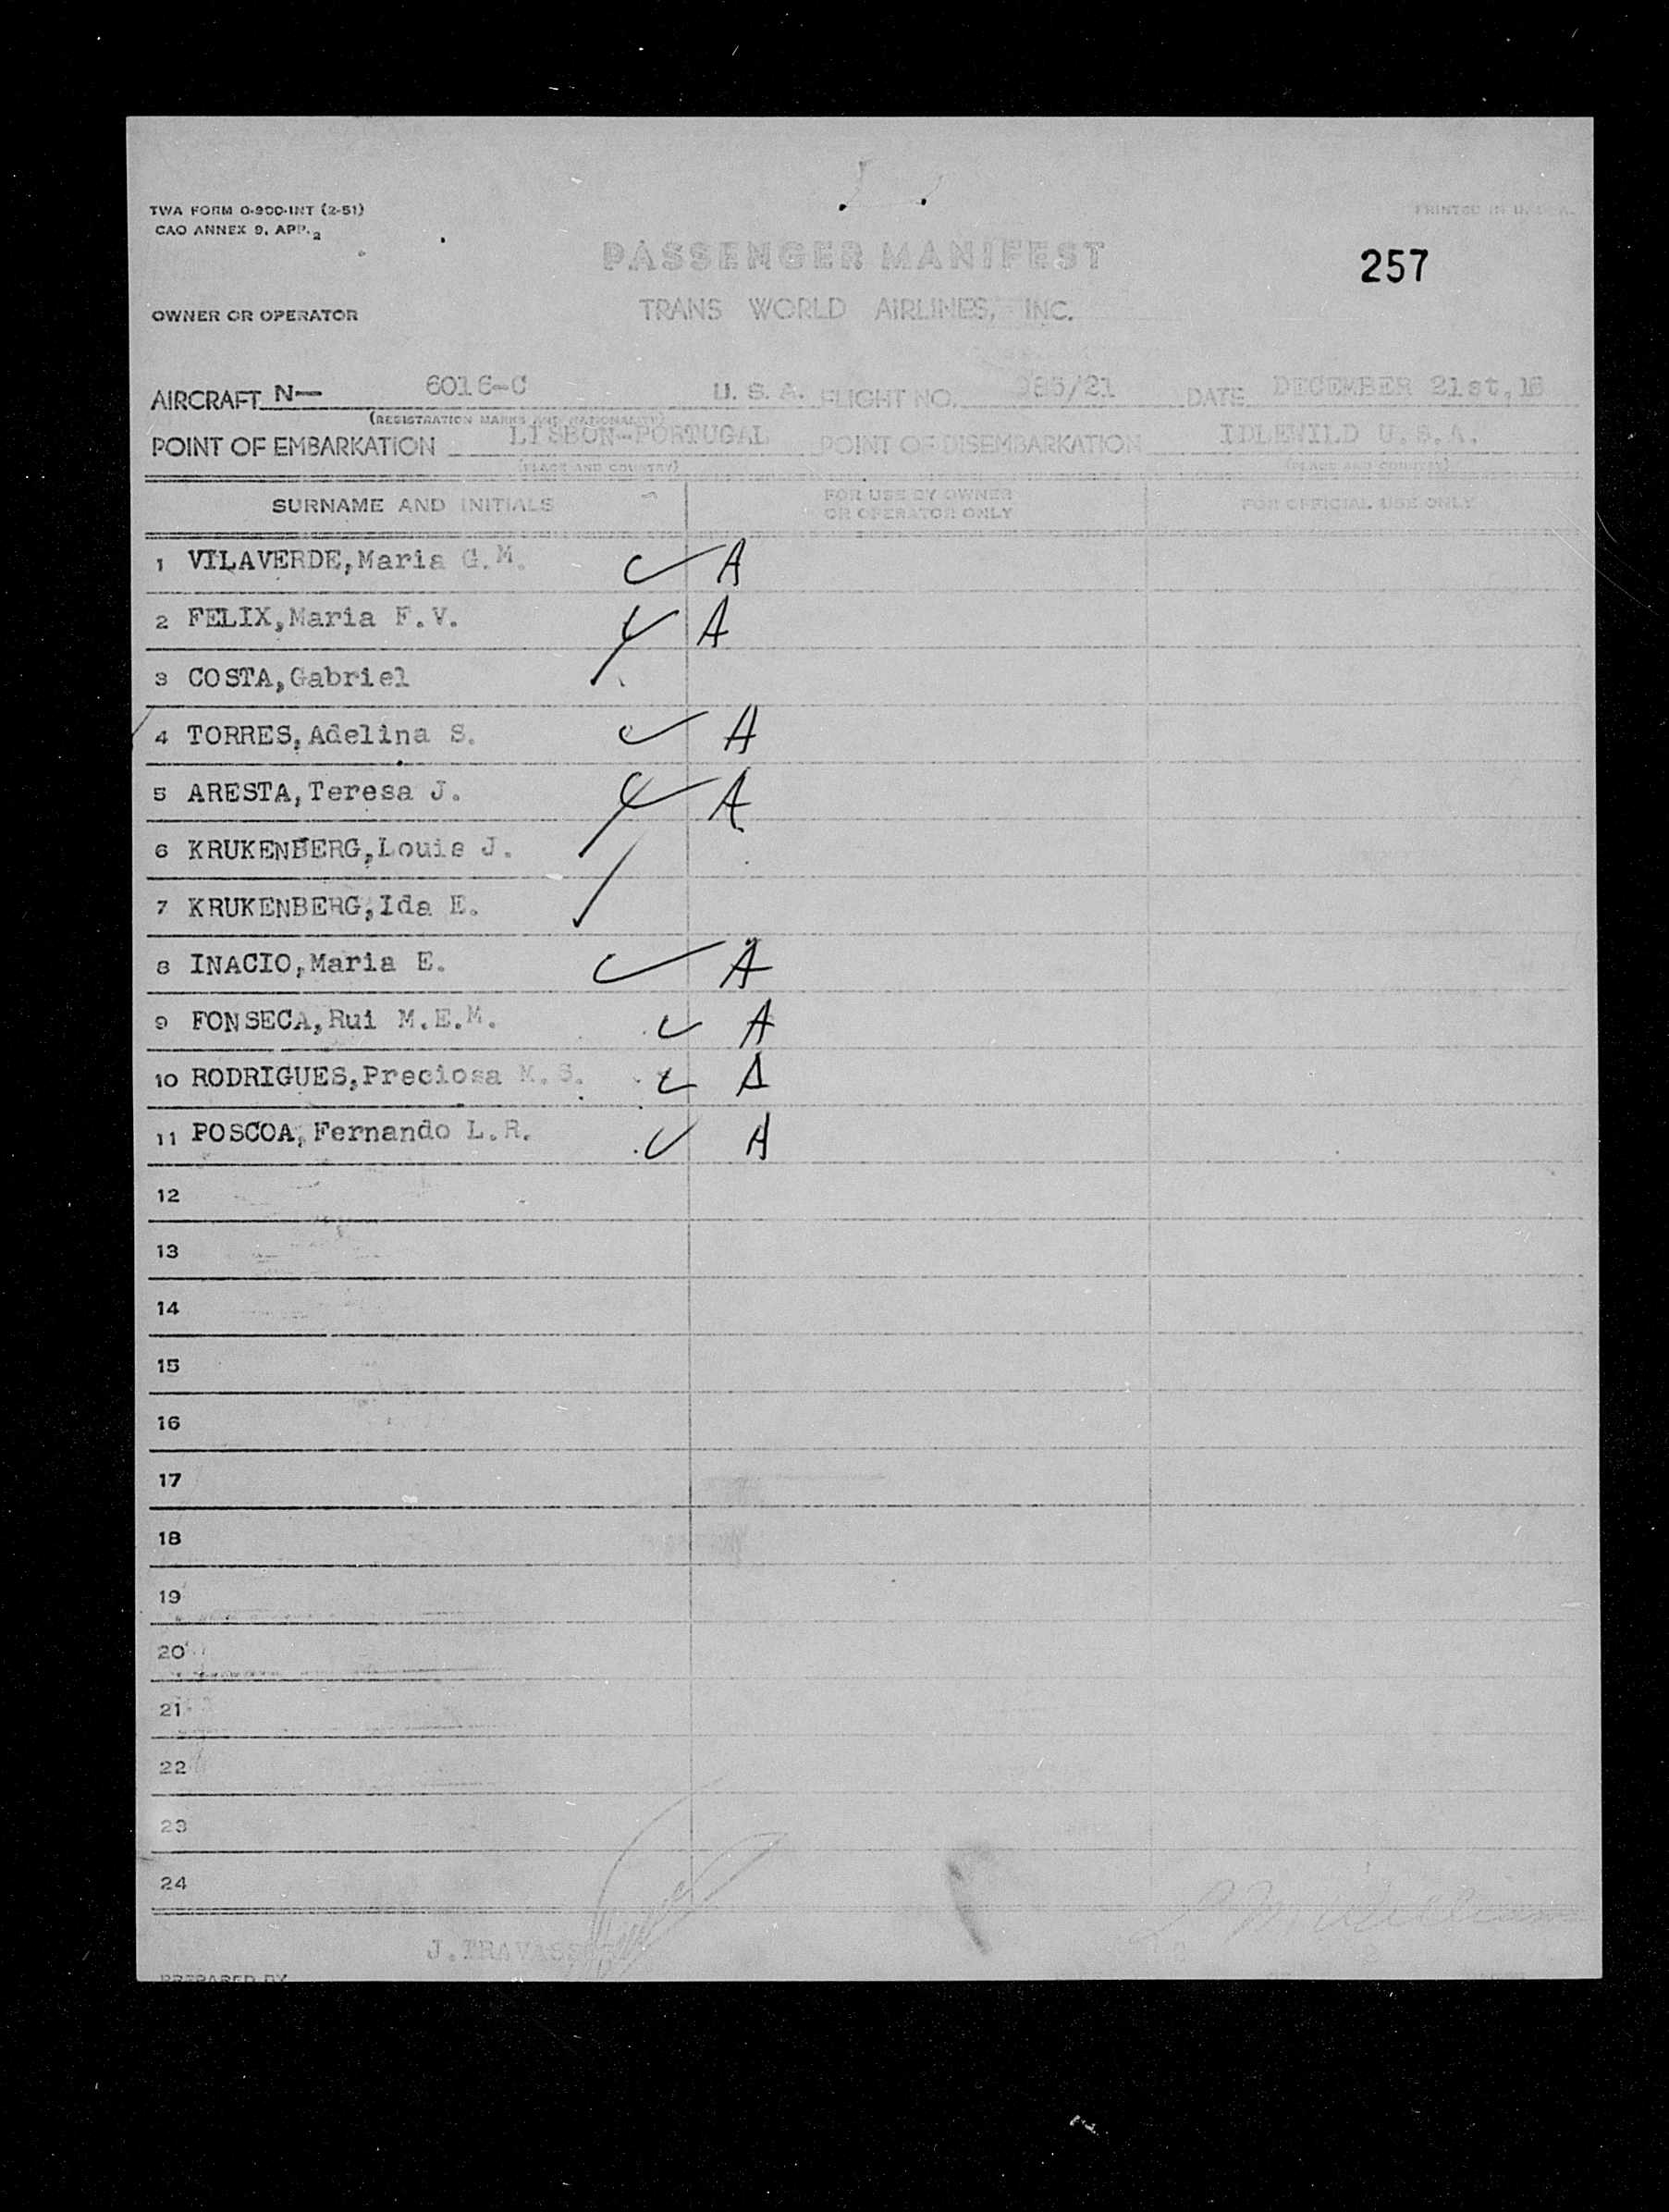 TWA FORM 0-900-INT (2-51)
PRINTED IN U.S.A.
CAO ANNEX 9, APP. 2
PASSENGER MANIFEST
257
OWNER OR OPERATOR
TRANS WORLD AIRLINES, INC.
AIRCRAFT N— 6016-C U. S. A. FLIGHT NO. 985/21 DATE DECEMBER 21st,
(REGISTRATION MARKS AND NATIONALITY)
POINT OF EMBARKATION LISBON-PORTUGAL POINT OF DISEMBARKATION IDLEWILD U.S.A.
(PLACE AND COUNTRY) (PLACE AND COUNTRY)
SURNAME AND INITIALS FOR USE BY OWNER OR OPERATOR ONLY FOR OFFICIAL USE ONLY
1 VILAVERDE,Maria G.M. A
2 FELIX,Maria F.V. A
3 COSTA,Gabriel
4 TORRES,Adelina S. A
5 ARESTA,Teresa J. A
6 KRUKENBERG,Louis J.
7 KRUKENBERG,Ida E.
8 INACIO,Maria E. A
9 FONSECA,Rui M.E.M. A
10 RODRIGUES,Preciosa M.S. A
11 POSCOA,Fernando L.R. A
12
13
14
15
16
17
18
19
20
21
22
23
24
PREPARED BY